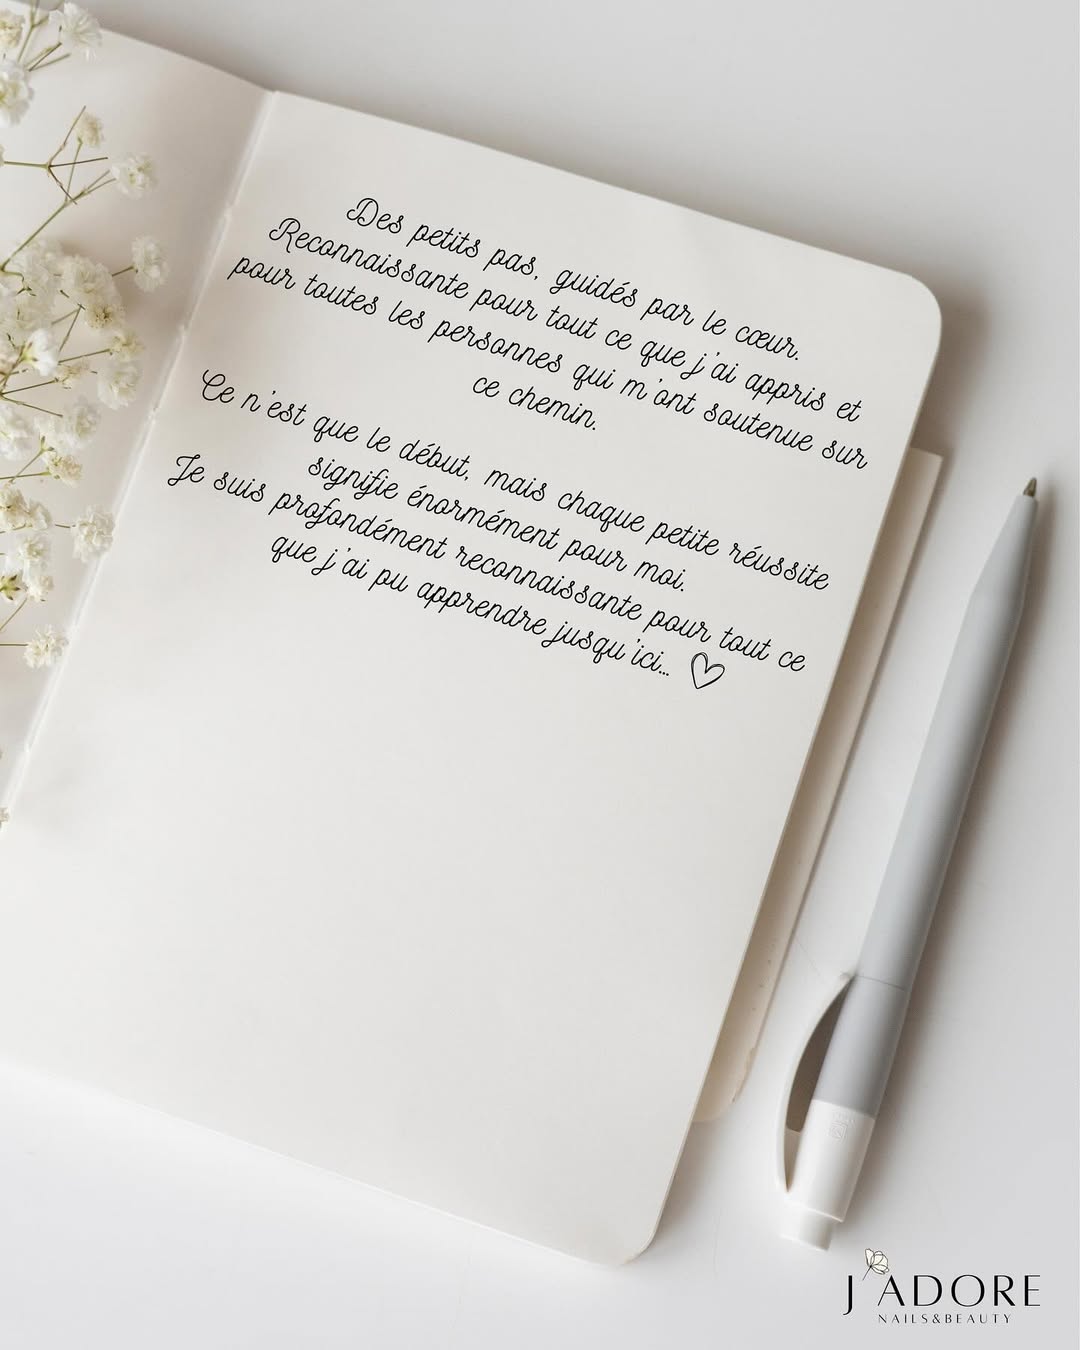 Des petits pas, guidés par le cœur.
Reconnaissante pour tout ce que j'ai appris et
pour toutes les personnes qui m'ont soutenue sur
ce chemin.
Ce n'est que le début, mais chaque petite réussite
signifie énormément pour moi.
Je suis profondément reconnaissante pour tout ce
que j'ai pu apprendre jusqu'ici... ♡
J'ADORE
NAILS&BEAUTY